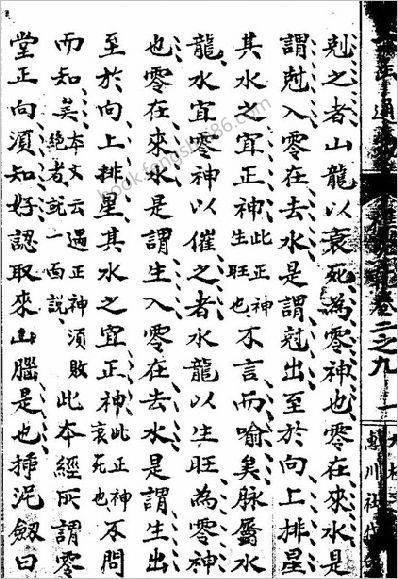 卷二之九 一
剋之者山龍以衰死為零神也零在來水是
謂尅入零在去水是謂尅出至於向上排星
其水之宜正神此正神生旺也不言而喻矣脉屬水
龍水宜零神以催之者水龍以生旺為零神
也零在來水是謂生入零在去水是謂生出
至於向上排星其水之宜正神此正神衰死也不問
而知矣本文云遇正神須敗絶者說一面說此本經所謂零
堂正向須知好認取來山腦是也挿泥劔曰